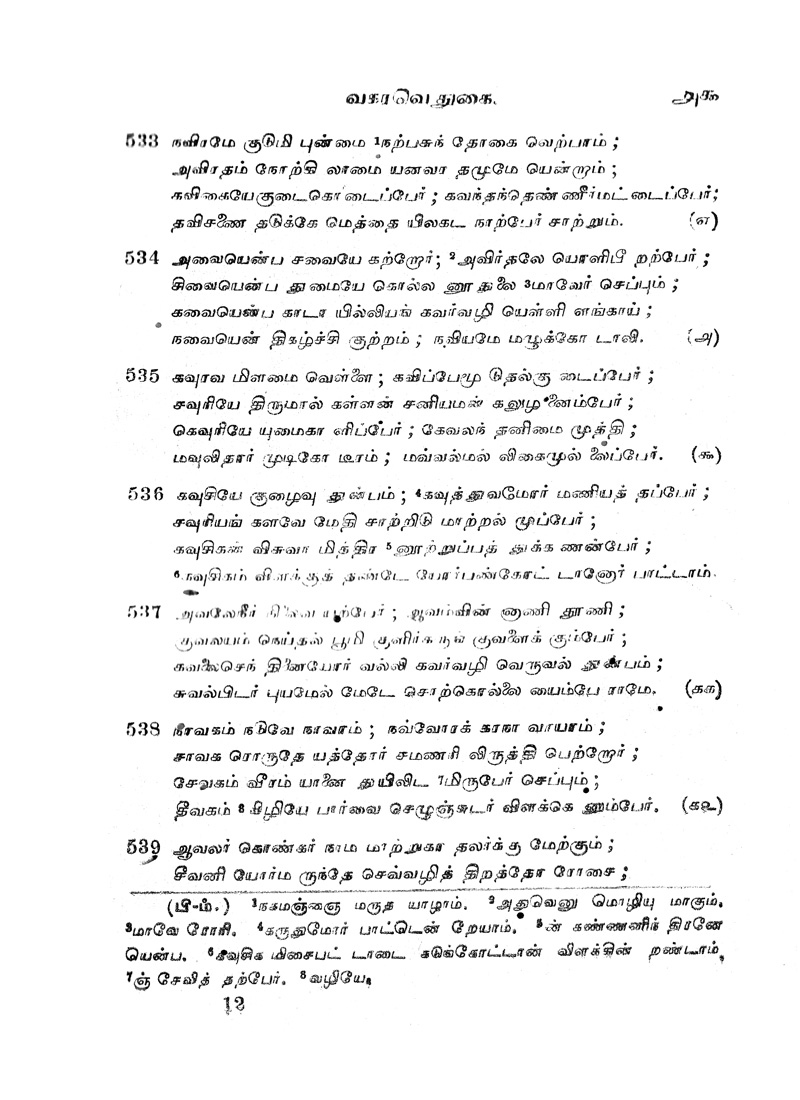 வகரவெதுகை. அக
533 நவிரமே குடுமி புன்மை ¹நற்பசுந் தோகை வெற்பாம் ;
அவிரதம் நோற்கி லாமை யனவா தமுமே யென்றும் ;
கவிகையேகுடைகொடைப்பேர் ; கவந்தந்தெண் ணீர்மட் டைப்பேர்;
தவிசணை தடுக்கே மெத்தை யிலகட நாற்பேர் சாற்றும். (எ)
534 அவையென்ப சவையே கற்றோர்; ²அவிர்தலே யொளிபீ றற்பேர் ;
சிவையென்ப துமையே கொல்ல னூதுலை ³மாவேர் செப்பும் ;
கவையென்ப காடா யில்லியங் கவர்வழி யெள்ளி ளங்காய் ;
நவையென் திகழ்ச்சி குற்றம் ; நவியமே மழுக்கோ டாலி. (அ)
535 கவுரவ மிளமை வெள்ளை ; கவிப்பேமூ டுதல்கு டைப்பேர் ;
சவுரியே திருமால் கள்ளன் சனியமன் கலுழ னைம்பேர் ;
கெவுரியே யுமைகா ளிப்பேர் ; கேவலந் தனிமை முத்தி ;
மவுலிதார் முடிகோ டீரம் ; மவ்வல்மல் லிகைமுல் லைப்பேர். (க)
536 கவுசியே குழைவு துன்பம் ; ⁴கவுத்துவமோர் மணியத் தப்பேர் ;
சவுரியங் களவே மேதி சாற்றிடு மாற்றல் முப்பேர் ;
கவுசிகன் விசுவா மித்திர ⁵னூற்றுப்பத் துக்க ணண்பேர் ;
⁶கவுசிகம் விளக்குத் தண்டே யோர்பண்கோட் டானோர் பாட்டாம்.
537 அவலேநீர் நிலைவ யற்பேர் ; ஆவம்வின் னாணி தூணி ;
குவலயம் நெய்தல் பூமி குளிர்தருங் குவளைக் கும்பேர் ;
கவலைசெந் தினையோர் வல்லி கவர்வழி வெருவல் துன்பம் ;
சுவல்பிடர் புயமேல் மேடே சொற்கொல்லை யைம்பே ராமே. (கக)
538 நாவகம் நடுவே நாவாம் ; நவ்வோரக் கரநா வாயாம் ;
சாவக ரொருதே யத்தோர் சமணரி லிருத்தி பெற்றோர் ;
சேவகம் வீரம் யானை துயிலிட ⁷மிருபேர் செப்பும் ;
தீவகம் ⁸கிழியே பார்வை செழுஞ்சுடர் விளக்கெ னும்பேர். (கஉ)
539 ஆவலர் கொண்கர் நாம மாற்றுகா தலர்க்கு மேற்கும் ;
சீவனி யோர்ம ருந்தே செவ்வழித் திறத்தோ ரோசை ;
(பி-ம்.) ¹நகமஞ்ஞை மருத யாழாம். ²அதுவெனு மொழியு மாகும்.
³மாவே ரோரி. ⁴கருதுமோர் பாட்டென் றேயாம். ⁵ன் கண்ணனிந் திரனே
யென்ப. ⁶கவுசிக மிசைபட் டாடை கடுங்கோட்டான் விளக்கின் றண்டாம்.
⁷ஞ் சேவித் தற்பேர். ⁸வழியே.
12